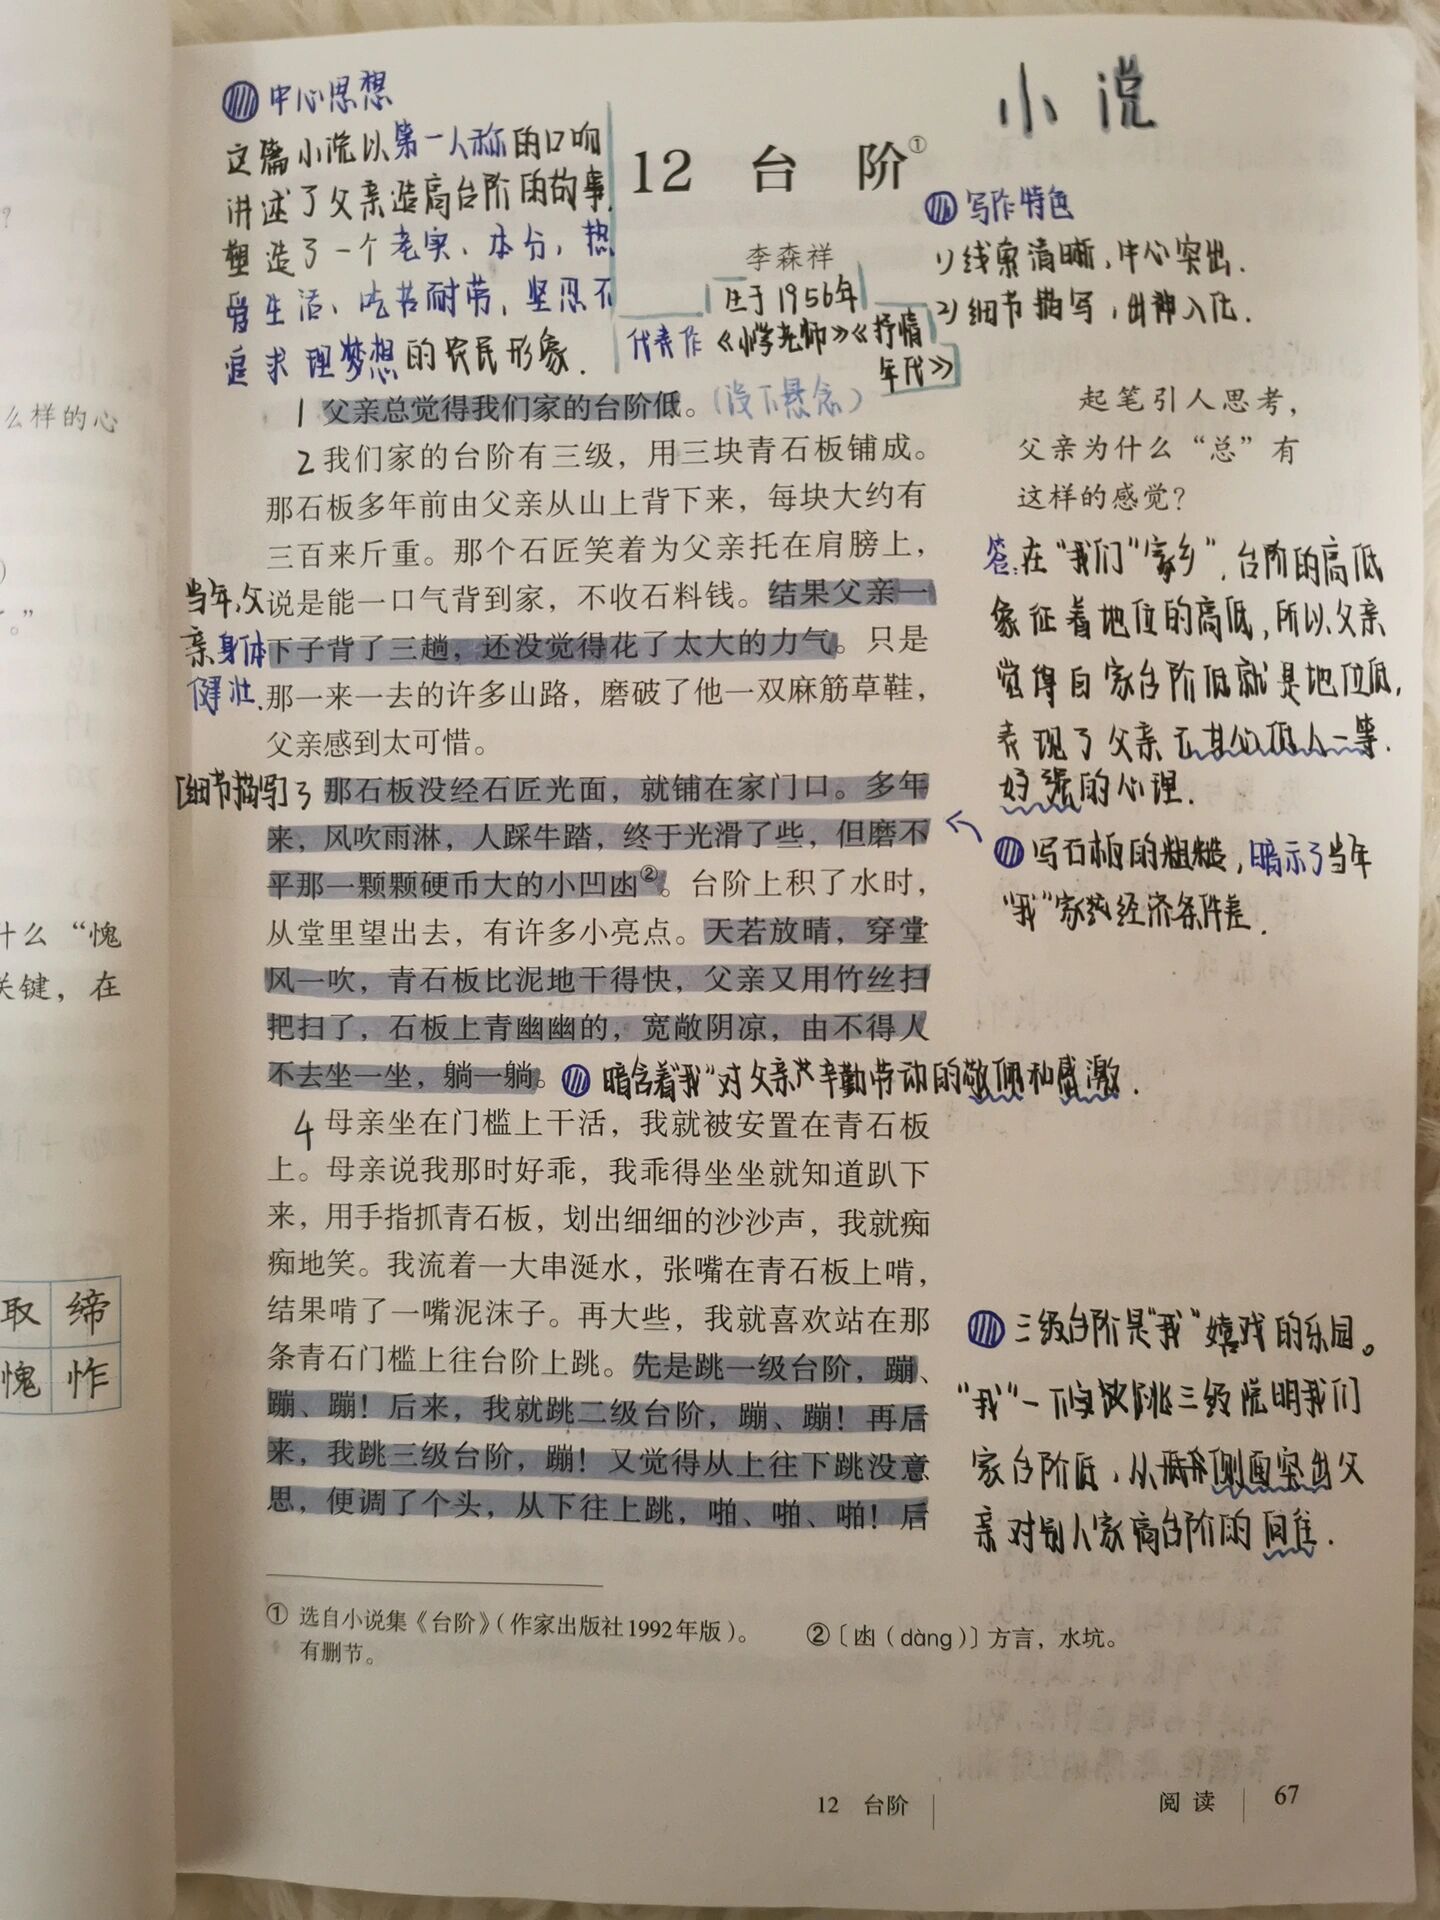 小说
中心思想
这篇小说以第一人称的口吻
讲述了父亲造高台阶的故事.
塑造了一个老实、本分、热
爱生活、吃苦耐劳、坚忍不
追求理梦想的农民形象.
12 台 阶①
李森祥
生于1956年
代表作《小学老师》《抒情
年代》
写作特色
1)线索清晰,中心突出.
2)细节描写,出神入化.
1 父亲总觉得我们家的台阶低。(设下悬念)
2 我们家的台阶有三级，用三块青石板铺成。
那石板多年前由父亲从山上背下来，每块大约有
三百来斤重。那个石匠笑着为父亲托在肩膀上，
说是能一口气背到家，不收石料钱。结果父亲一
下子背了三趟，还没觉得花了太大的力气。只是
那一来一去的许多山路，磨破了他一双麻筋草鞋，
父亲感到太可惜。
当年,父
亲身体
健壮.
[细节描写]3 那石板没经石匠光面，就铺在家门口。多年
来，风吹雨淋，人踩牛踏，终于光滑了些，但磨不
平那一颗颗硬币大的小凹凼②。台阶上积了水时，
从堂里望出去，有许多小亮点。天若放晴，穿堂
风一吹，青石板比泥地干得快，父亲又用竹丝扫
把扫了，石板上青幽幽的，宽敞阴凉，由不得人
不去坐一坐，躺一躺。暗含着"我"对父亲辛勤劳动的敬佩和感激.
4 母亲坐在门槛上干活，我就被安置在青石板
上。母亲说我那时好乖，我乖得坐坐就知道趴下
来，用手指抓青石板，划出细细的沙沙声，我就痴
痴地笑。我流着一大串涎水，张嘴在青石板上啃，
结果啃了一嘴泥沫子。再大些，我就喜欢站在那
条青石门槛上往台阶上跳。先是跳一级台阶，蹦、
蹦、蹦！后来，我就跳二级台阶，蹦、蹦！再后
来，我跳三级台阶，蹦！又觉得从上往下跳没意
思，便调了个头，从下往上跳，啪、啪、啪！后
起笔引人思考，
父亲为什么“总”有
这样的感觉？
答:在"我们"家乡",台阶的高低
象征着地位的高低,所以父亲
觉得自家台阶低就是地位低,
表现了父亲不甘心低人一等.
好强的心理.
写石板的粗糙,暗示了当年
"我"家经济条件差.
三级台阶是"我"嬉戏的乐园。
"我"一下跳三级说明我们
家台阶低,从侧面突出父
亲对别人家高台阶的向往.
① 选自小说集《台阶》（作家出版社1992年版）。
有删节。
②〔凼（dàng）〕方言，水坑。
12 台阶
阅读 67
么样的心
什么“愧
关键，在
取 缔
愧 怍